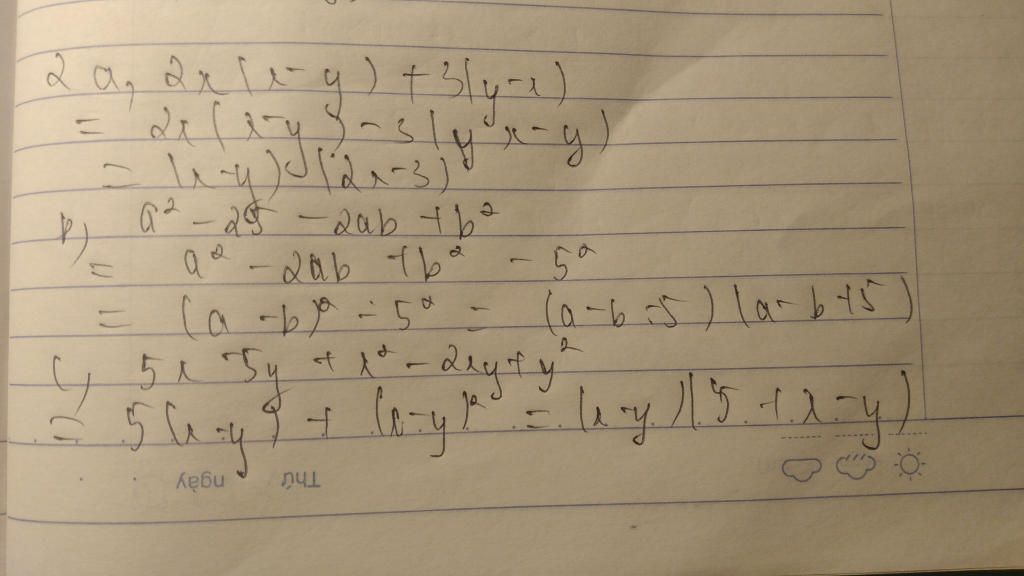 2 a, 2x(x-y) + 3(y-x)
= 2x(x-y) - 3(y x-y)
= (x-y) (2x-3)
b) a² - 25 - 2ab + b²
= a² - 2ab + b² - 5²
= (a - b)² - 5² = (a-b-5)(a-b+5)
c, 5x - 5y + x² - 2xy + y²
= 5(x-y) + (x-y)² = (x-y)(5+x-y)
Thứ ngày